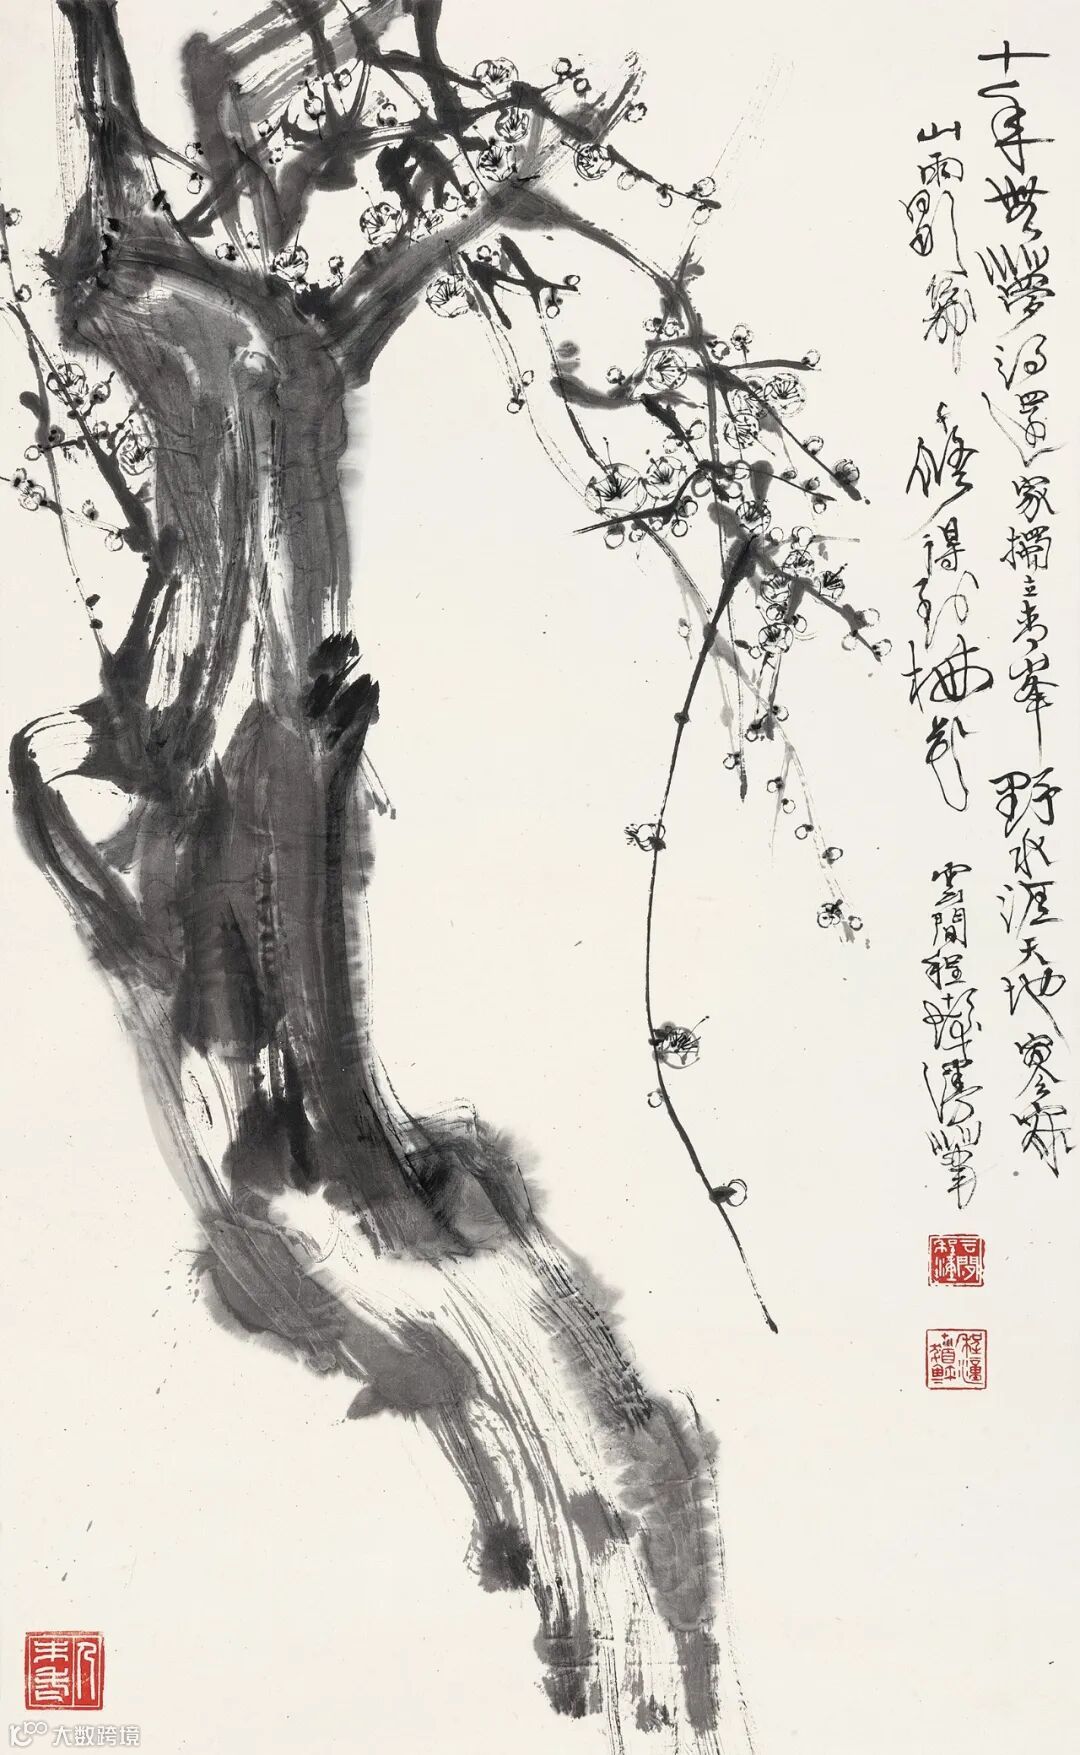 十年無夢得還家獨立青峯野水涯天地寂寥
山雨歇幾生修得到梅花 雲間程十髮漫筆
大数跨境